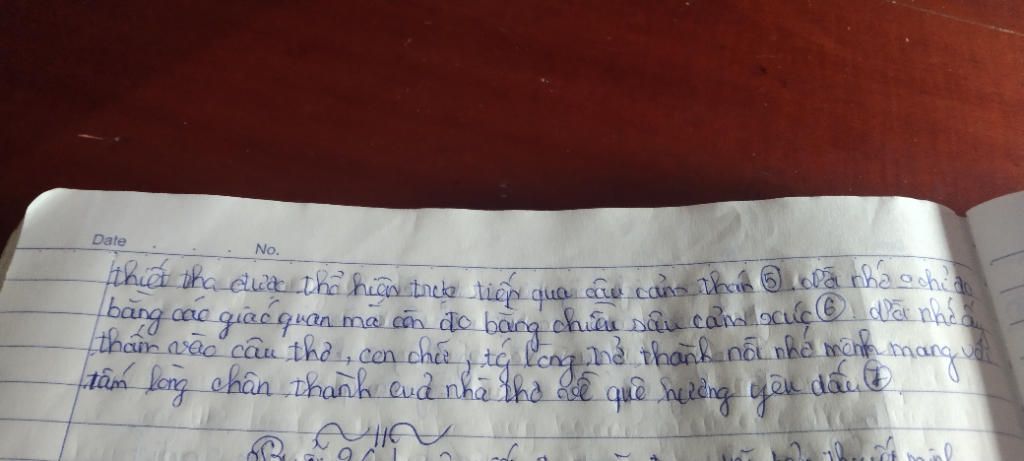 Date . . . No.
thiết tha được thể hiện trực tiếp qua câu cảm thán ⑤. Nỗi nhớ chỉ đo
bằng các giác quan mà còn đo bằng chiều sâu cảm xúc ⑥. Nỗi nhớ ấy
thấm vào câu thơ, con chữ, từ lòng mở thành nỗi nhớ mênh mang với
tấm lòng chân thành của nhà thơ về quê hương yêu dấu ⑦.